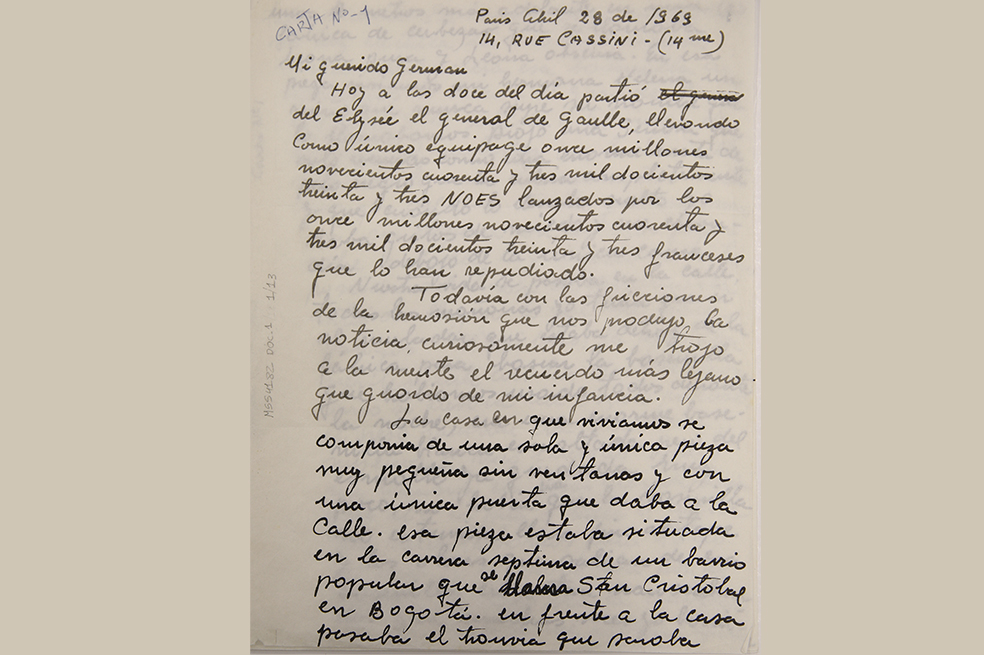 CARTA Nº-1
Paris Abil 28 de 1969
14, RUE CASSINI - (14 me)
Mi querido German
Hoy a las doce del día partió
del Elysée el general de Gaulle, llevando
Como único equipage once millones
novecientos cuarenta y tres mil docientos
treinta y tres NOES lanzados por los
once millones novecientos cuarenta y
tres mil docientos treinta y tres franceses
que lo han repudiado.
Todavía con las
de la que nos produjo la
noticia, curiosamente me trajo
a la mente el recuerdo más lejano
que guardo de mi infancia.
La casa en que viviamos se
componia de una sola y única pieza
muy pequeña sin ventanas y con
una única puerta que daba a la
Calle. esa pieza estaba situada
en la carrera septima de un barrio
popular que se llama San Cristobal
en Bogotá. en frente a la casa
pasaba el tranvia que
MSS4182 DOC.1 1/13